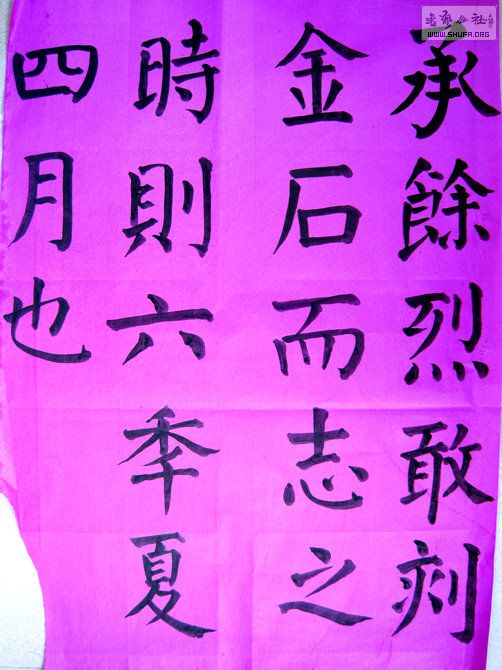 承餘烈敢刻
金石而志之
時則六季夏
四月也
書藝公社
WWW.SHUFA.ORG